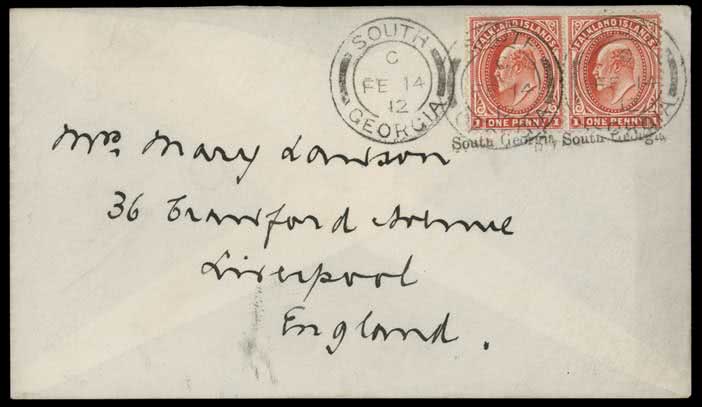 SOUTH
C
FE 14
12
GEORGIA
FALKLAND ISLANDS
1 ONE PENNY 1
FALKLAND ISLANDS
1 ONE PENNY 1
South Georgia. South Georgia.
Mrs Mary Lawson
36 Crawford Avenue
Liverpool
England.